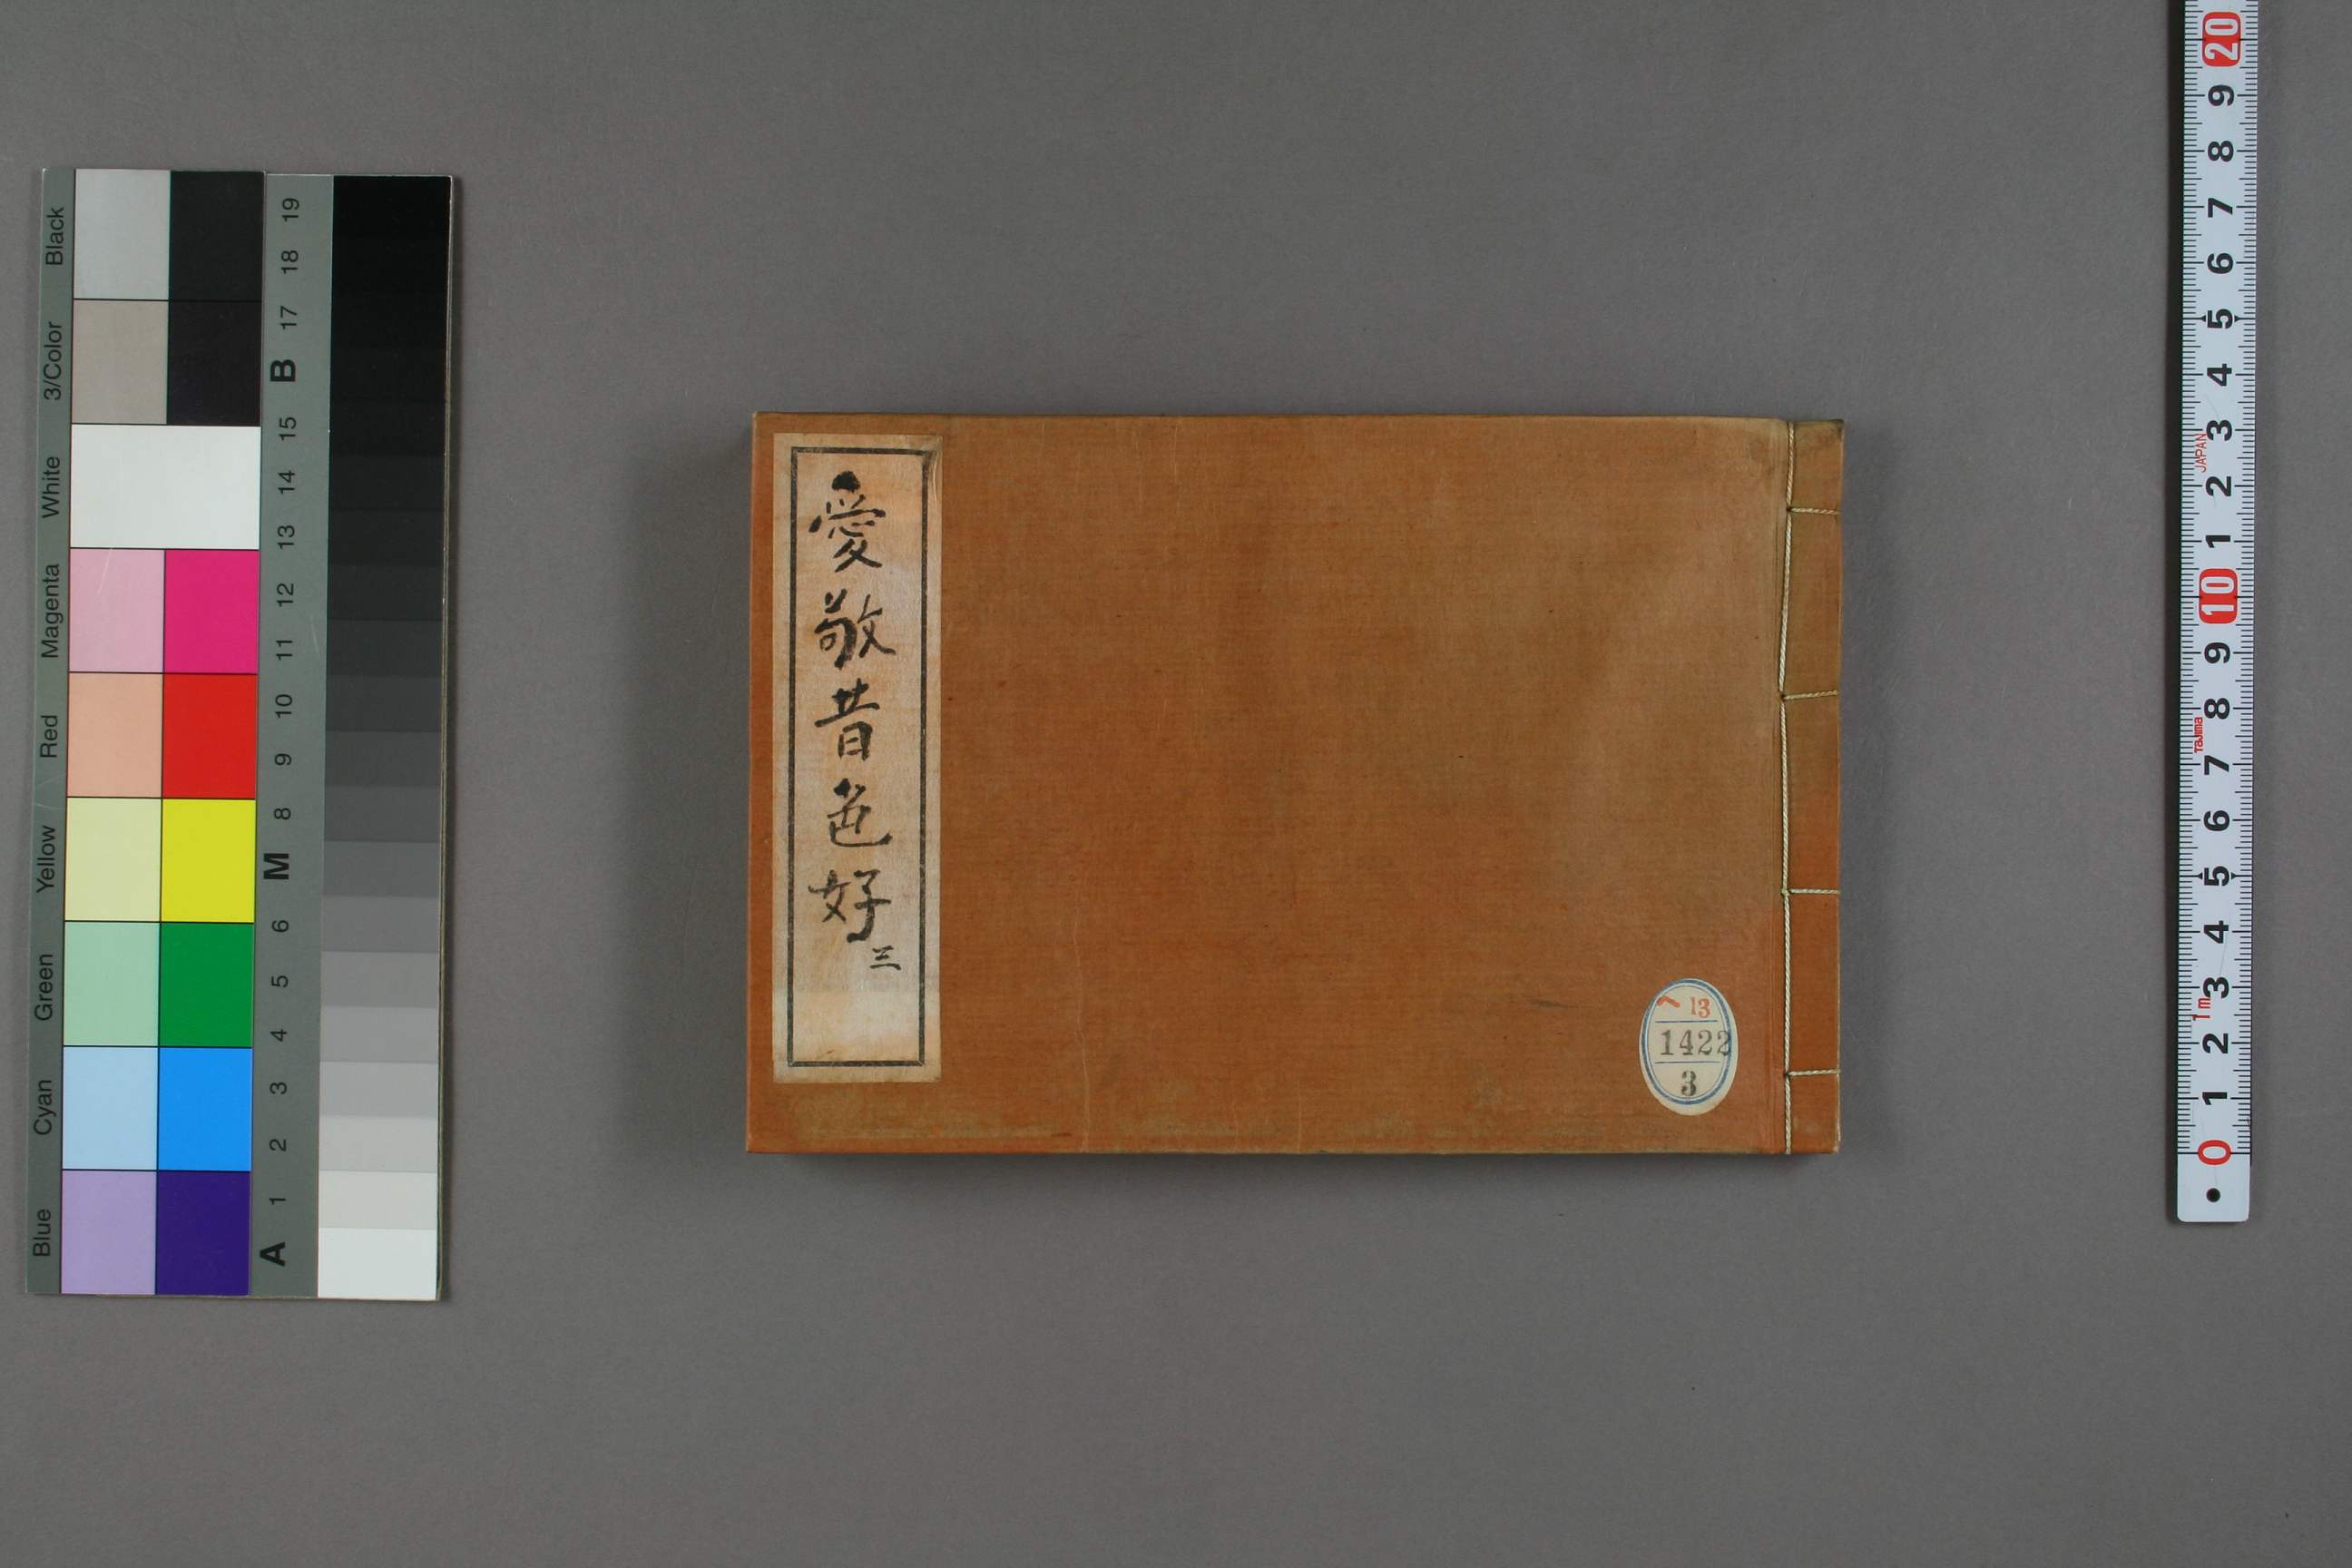 愛敬昔色好
三
へ 13
1422
3
Black
3/Color
White
Magenta
Red
Yellow
Green
Cyan
Blue
19
18
17
B
15
14
13
12
11
10
9
8
M
6
5
4
3
2
1
A
20
9
8
7
6
5
4
3
JAPAN
2
1
10
9
8
Tajima
7
6
5
4
3
1m
2
1
0